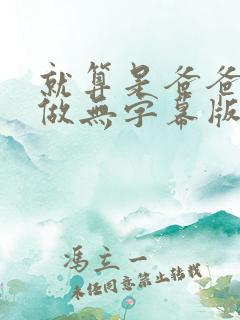 就算是爸爸
做無字幕版
馮立一
未经同意禁止转载